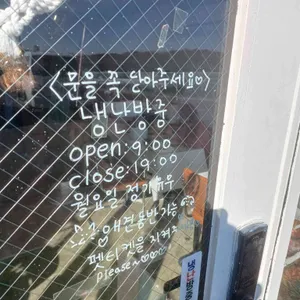 <문을 꼭 닫아주세요♡>
냉난방중
open:9:00
close:19:00
월요일 정기휴무
애견동반가능
펫티켓을 지켜주
please~